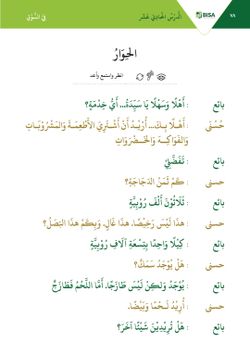 ٧٨ BISA الدَّرْسُ الْحَادِيْ عَشَرَ فِي السُّوْقِ
الحِوَارُ
انظر واستمع وأعد
بائع : أَهْلًا وَسَهْلًا يَا سَيِّدَة... أَيُّ خِدْمَةٍ؟
حُسْنَى : أَهْلًا بِكَ... أُرِيْدُ أَنْ أَشْتَرِيَ الْأَطْعِمَةَ وَالْمَشْرُوْبَاتِ
وَالْفَوَاكِهَ وَالْخَضْرَوَاتِ
بائع : تَفَضَّلِيْ
حسنى : كَمْ ثَمَنُ الدَّجَاجَةِ؟
بائع : ثَلَاثُوْنَ أَلْفَ رُوْبِيَّةٍ
حسنى : هٰذَا لَيْسَ رَخِيْصًا، هٰذَا غَالٍ، وَبِكَمْ هٰذَا الْبَصَلُ؟
بائع : كِيْلًا وَاحِدًا بِتِسْعَةِ آلَافِ رُوْبِيَّةٍ
حسنى : هَلْ يُوْجَدُ سَمَكٌ؟
بائع : يُوْجَدُ وَلٰكِنْ لَيْسَ طَازَجًا، أَمَّا اللَّحْمُ فَطَازَجٌ
حسنى : أُرِيْدُ لَحْمًا وَبَيْضًا.
بائع : هَلْ تُرِيْدِيْنَ شَيْئًا آخَرَ؟